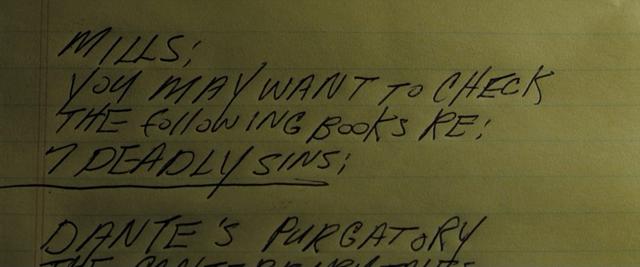 MILLS;
YOU MAY WANT TO CHECK
THE FOLLOWING BOOKS RE;
7 DEADLY SINS;
DANTE'S PURGATORY
THE CANTERBURY TALES